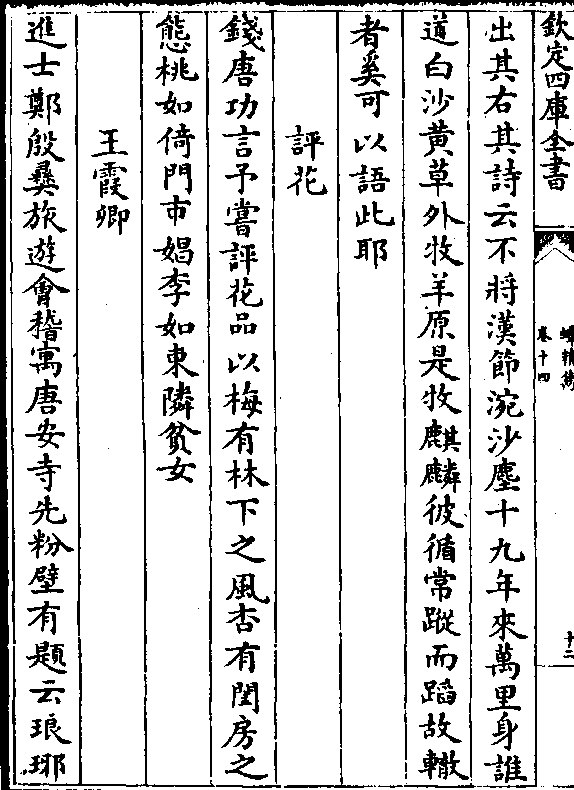 欽定四庫全書
蟫精雋
卷十四
十二
出其右其詩云不將漢節涴沙塵十九年來萬里身誰
道白沙黄草外牧羊原是牧麒麟彼循常蹤而蹈故轍
者奚可以語此耶
評花
錢唐功言予嘗評花品以梅有林下之風杏有閨房之
態桃如倚門市娼李如東隣貧女
王霞卿
進士鄭殷彞旅遊會稽寓唐安寺先粉壁有題云琅琊